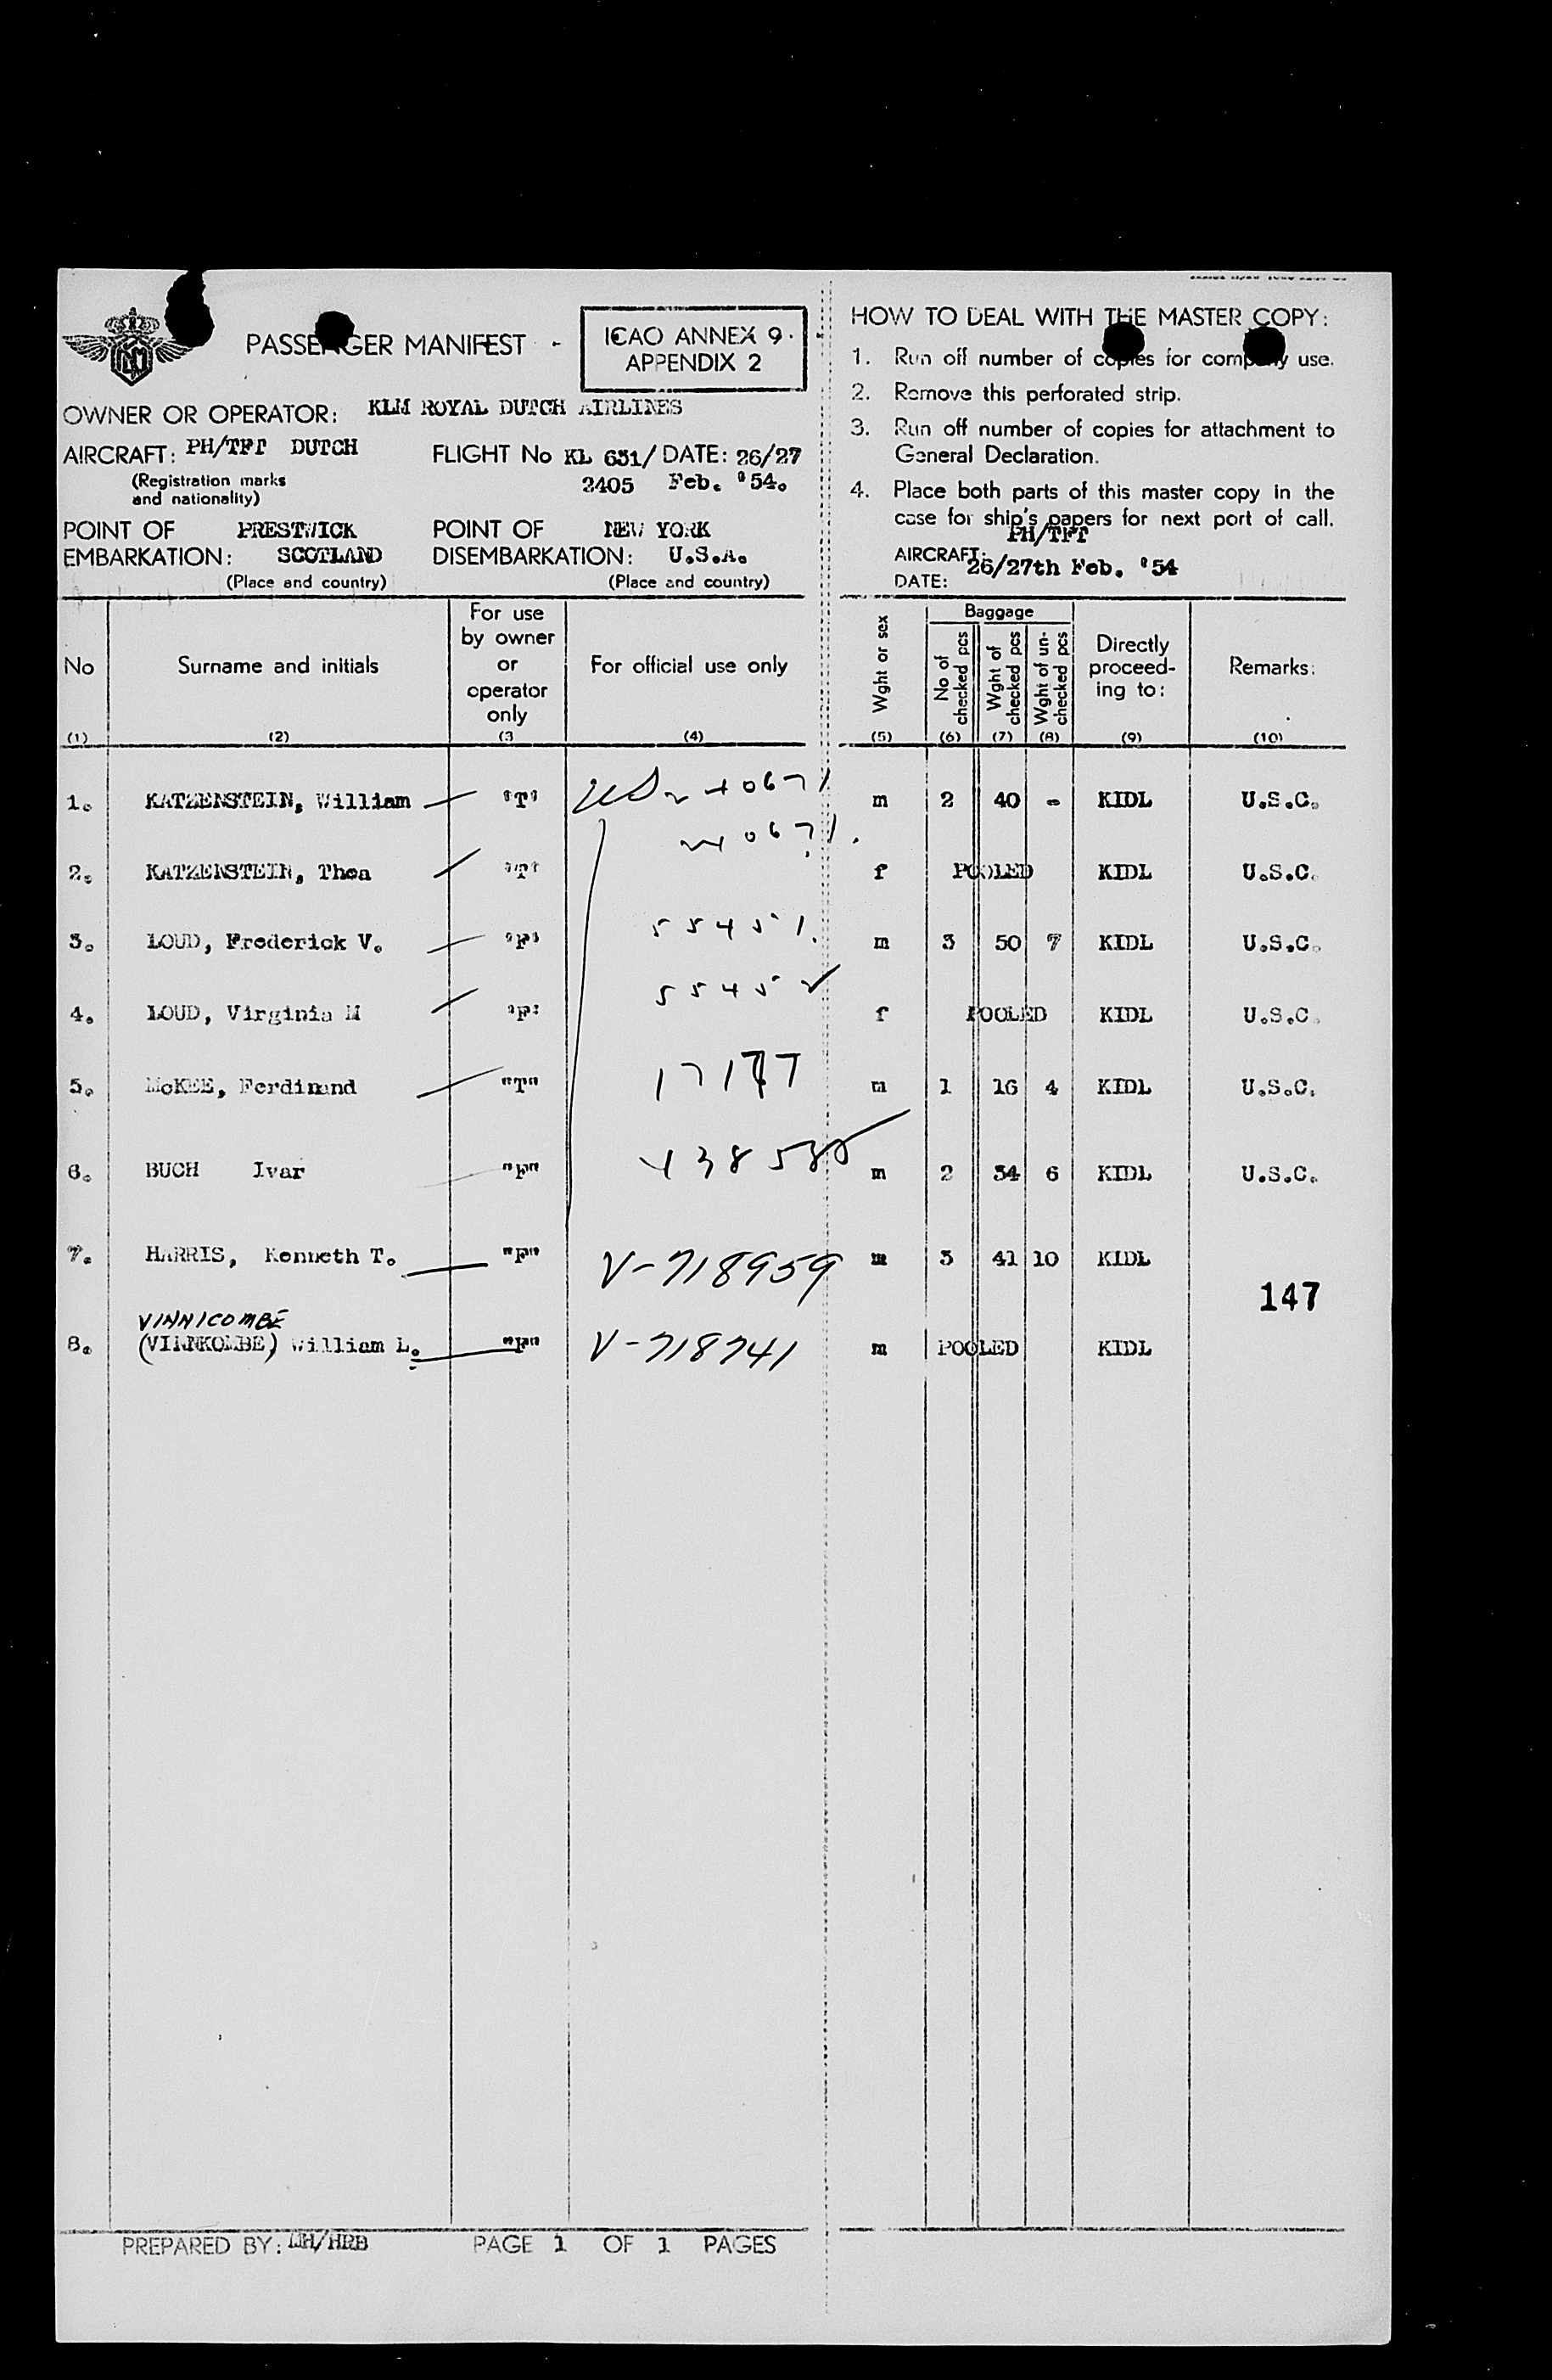 PASSENGER MANIFEST -
ICAO ANNEX 9.
APPENDIX 2
OWNER OR OPERATOR: KLM ROYAL DUTCH AIRLINES
AIRCRAFT: PH/TFT DUTCH
(Registration marks
and nationality)
FLIGHT No KL 651/ DATE: 26/27
2405 Feb. '54.
POINT OF PRESTWICK
EMBARKATION: SCOTLAND
(Place and country)
POINT OF NEW YORK
DISEMBARKATION: U.S.A.
(Place and country)
HOW TO DEAL WITH THE MASTER COPY:
1. Run off number of copies for company use.
2. Remove this perforated strip.
3. Run off number of copies for attachment to
General Declaration.
4. Place both parts of this master copy in the
case for ship's papers for next port of call.
PH/TFT
AIRCRAFT:
26/27th Feb. '54
DATE:
No
(1)
Surname and initials
(2)
For use
by owner
or
operator
only
(3
For official use only
(4)
Wght or sex
(5)
Baggage
No of
checked pcs
(6)
Wght of
checked pcs
(7)
Wght of un-
checked pcs
(8)
Directly
proceed-
ing to:
(9)
Remarks:
(10)
1. KATZENSTEIN, William 'T' m 2 40 - KIDL U.S.C.
2. KATZENSTEIN, Thea 'T' f POOLED KIDL U.S.C.
3. LOUD, Frederick V. 'F' 55451. m 3 50 7 KIDL U.S.C.
4. LOUD, Virginia M 'F' 55452 f POOLED KIDL U.S.C.
5. McKEE, Ferdinand "T" 17177 m 1 16 4 KIDL U.S.C.
6. BUCH Ivar "F" m 2 34 6 KIDL U.S.C.
7. HARRIS, Kenneth T. "F" V-718959 m 3 41 10 KIDL
147
VINNICOMBE
8. (VINNKOMBE) William L. "F" V-718741 m POOLED KIDL
PREPARED BY: /HRB PAGE 1 OF 1 PAGES